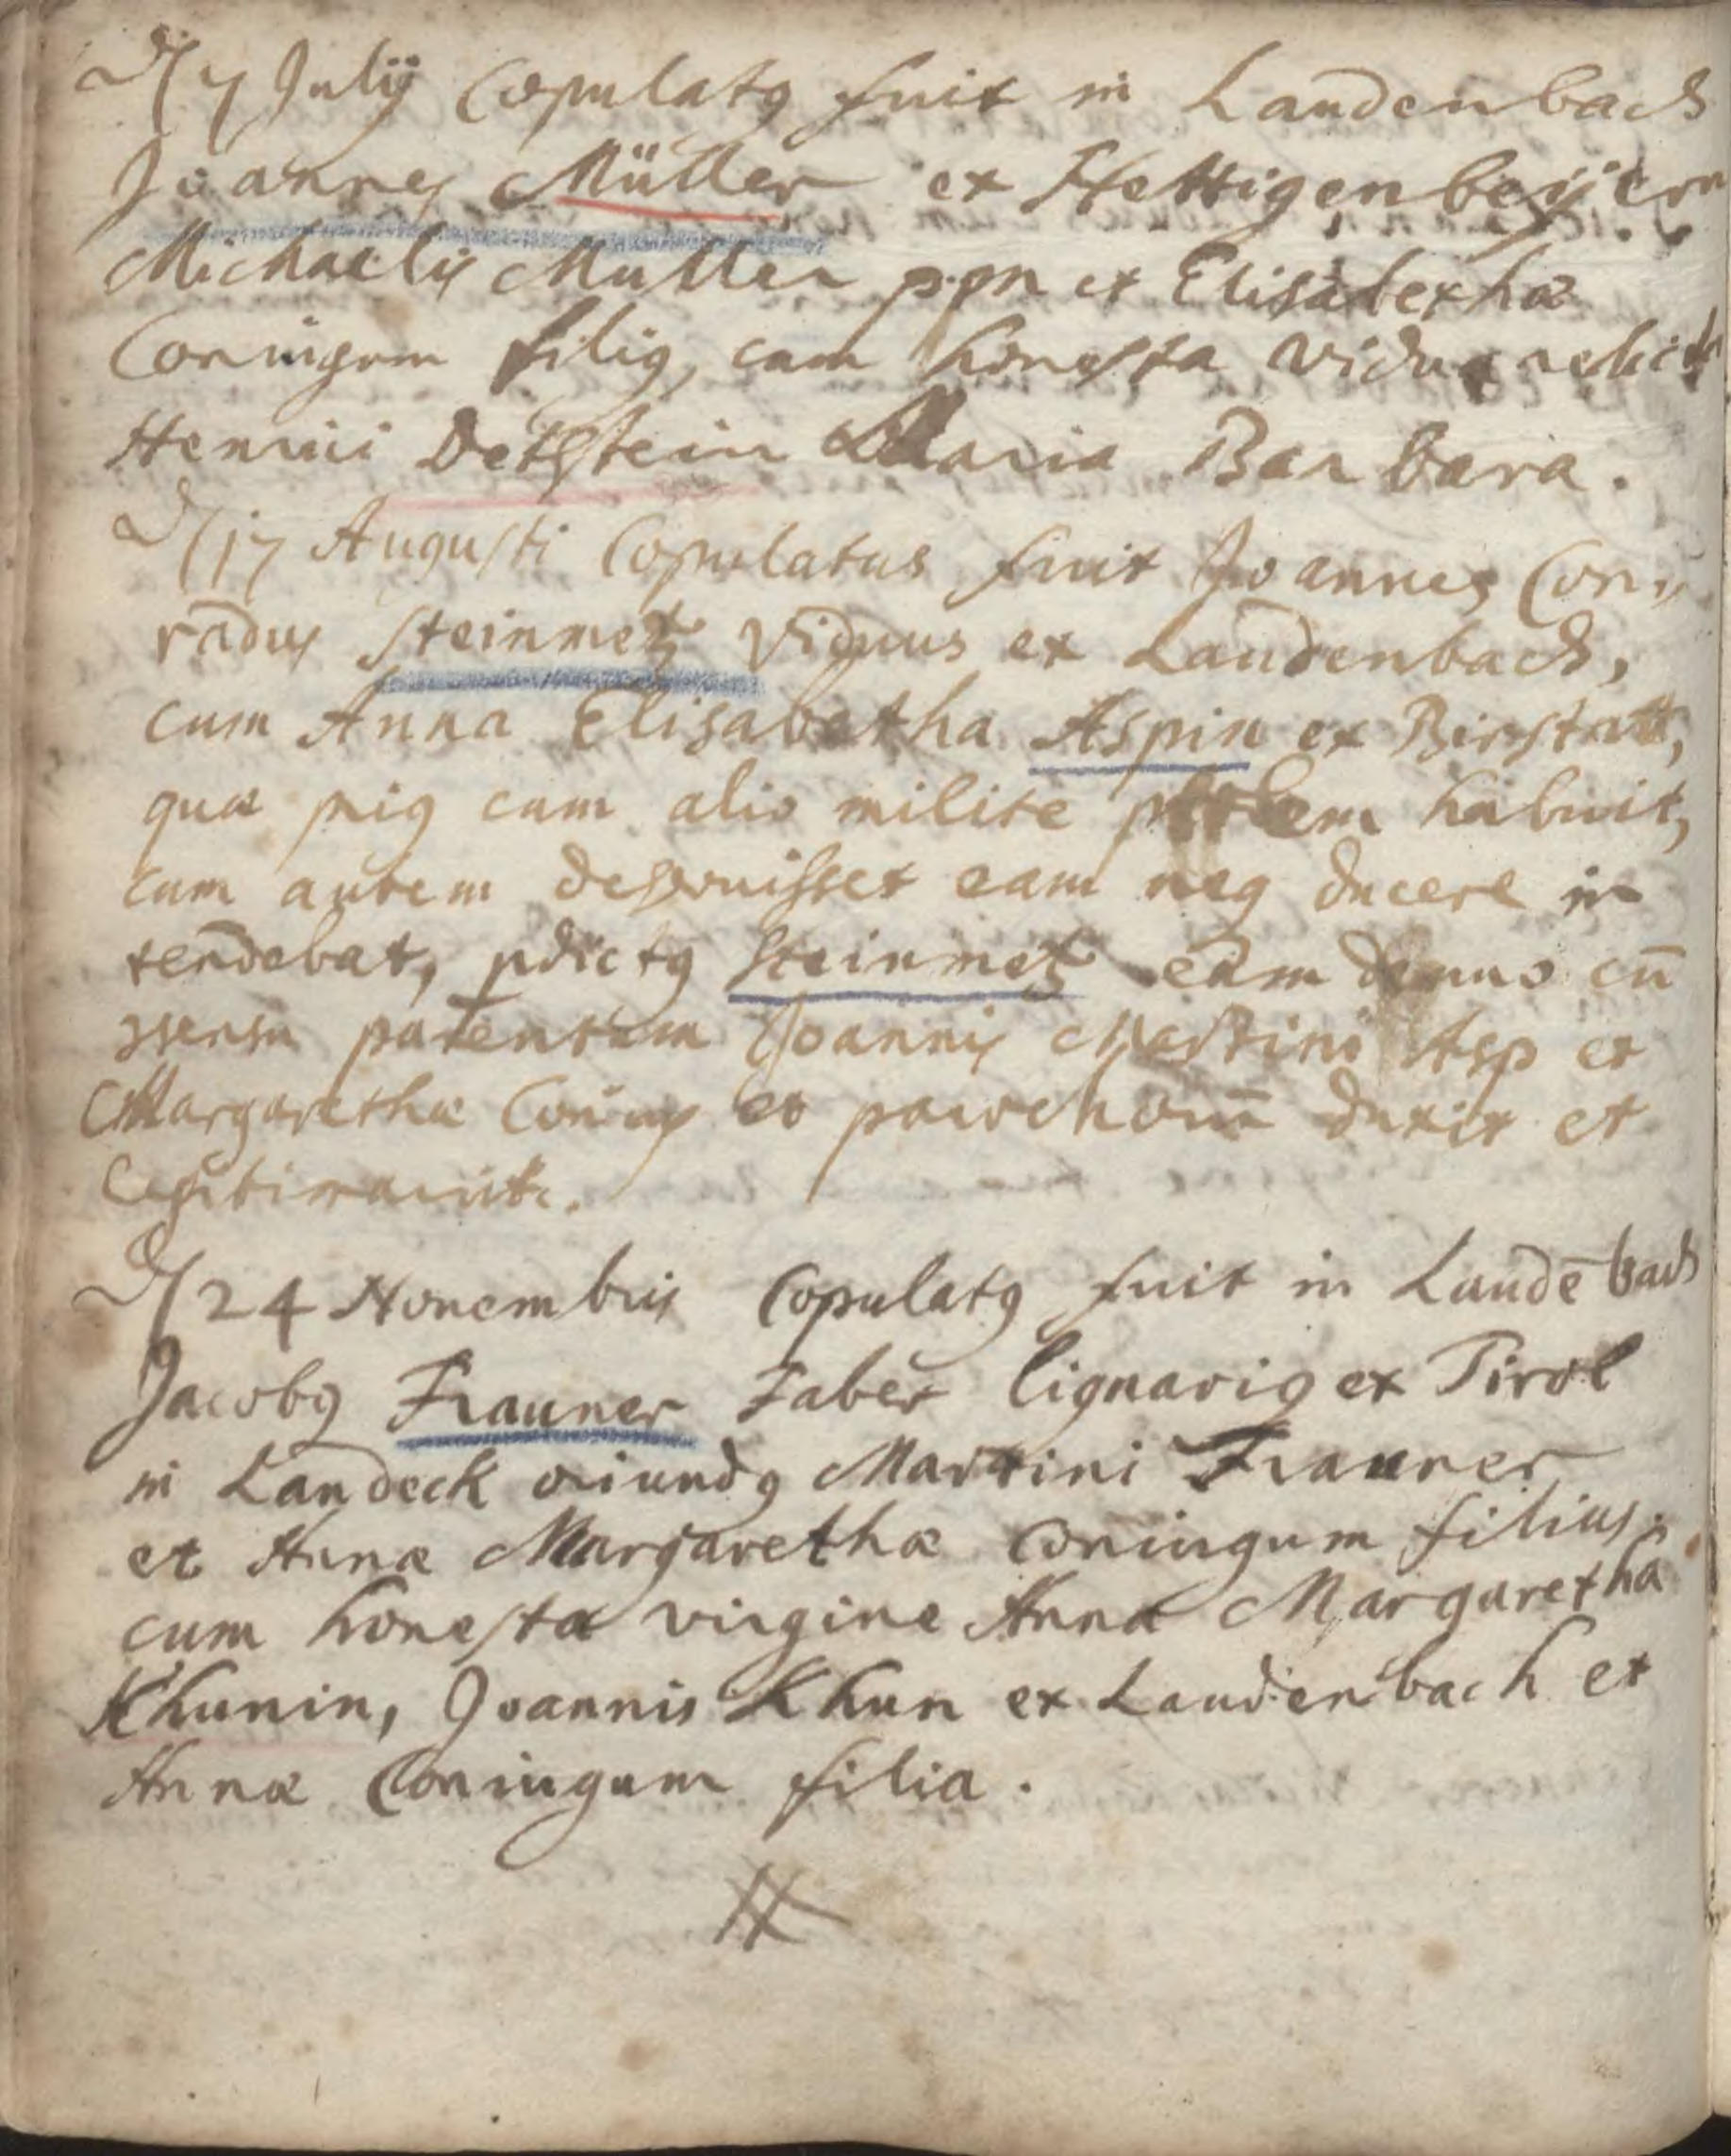 D 7 Julij Copulatꝯ fuit in Laudenbach
Joannes Müller ex Hettigenbeÿern
Michaelis Muller p.m et Elisabethæ
Coniugum filiꝯ, cum honesta vidua relicta
Henrici Detstein Maria Barbara.
D 17 Augusti Copulatus fuit Joannes Con,,
radus Steinmetz Viduus ex Laudenbach,
cum Anna Elisabetha Aspin ex Birstatt,
quæ priꝯ cum alio milite prolem habuit,
cum autem deseruisset eam neq ducere in
tendebat, pdictꝯ Steinmetz eam denuo cū
ↄsensu parentum Joannis Martini Asp et
Margarethæ Coniug et duxit et
legitimavit.
D 24 Novembris Copulatꝯ fuit in Laudēbach
Jacobꝯ Frauner Faber lignariꝯ ex Tirol
in Landeck oriundꝯ Martini Frauner
et Annæ Margarethæ Coniugum filius.
cum honesta virgine Anna Margaretha
Khunin, Joannis Khun ex Laudenbach et
Annæ Coniugum filia.